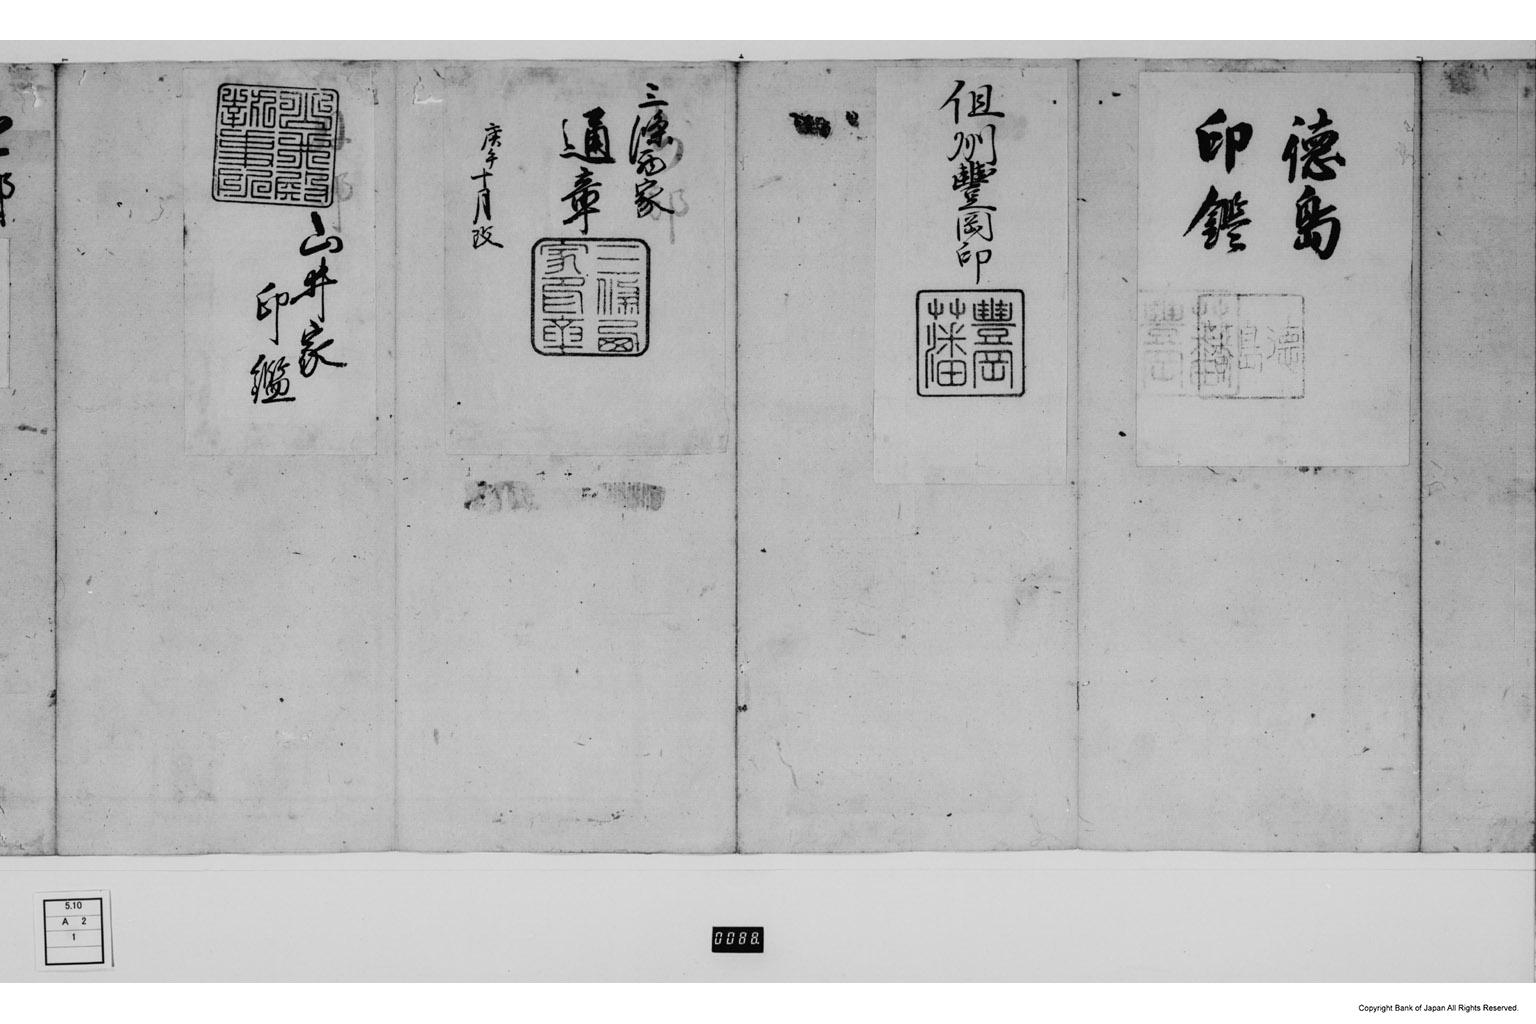 徳島
印鑑
徳島
藩
豐岡
藩
但州豐岡印
豐岡
藩
三條西家
通章
庚午十月改
三條西
家印章
山井家
印鑑
5.10
A 2
1
0088
Copyright Bank of Japan All Rights Reserved.